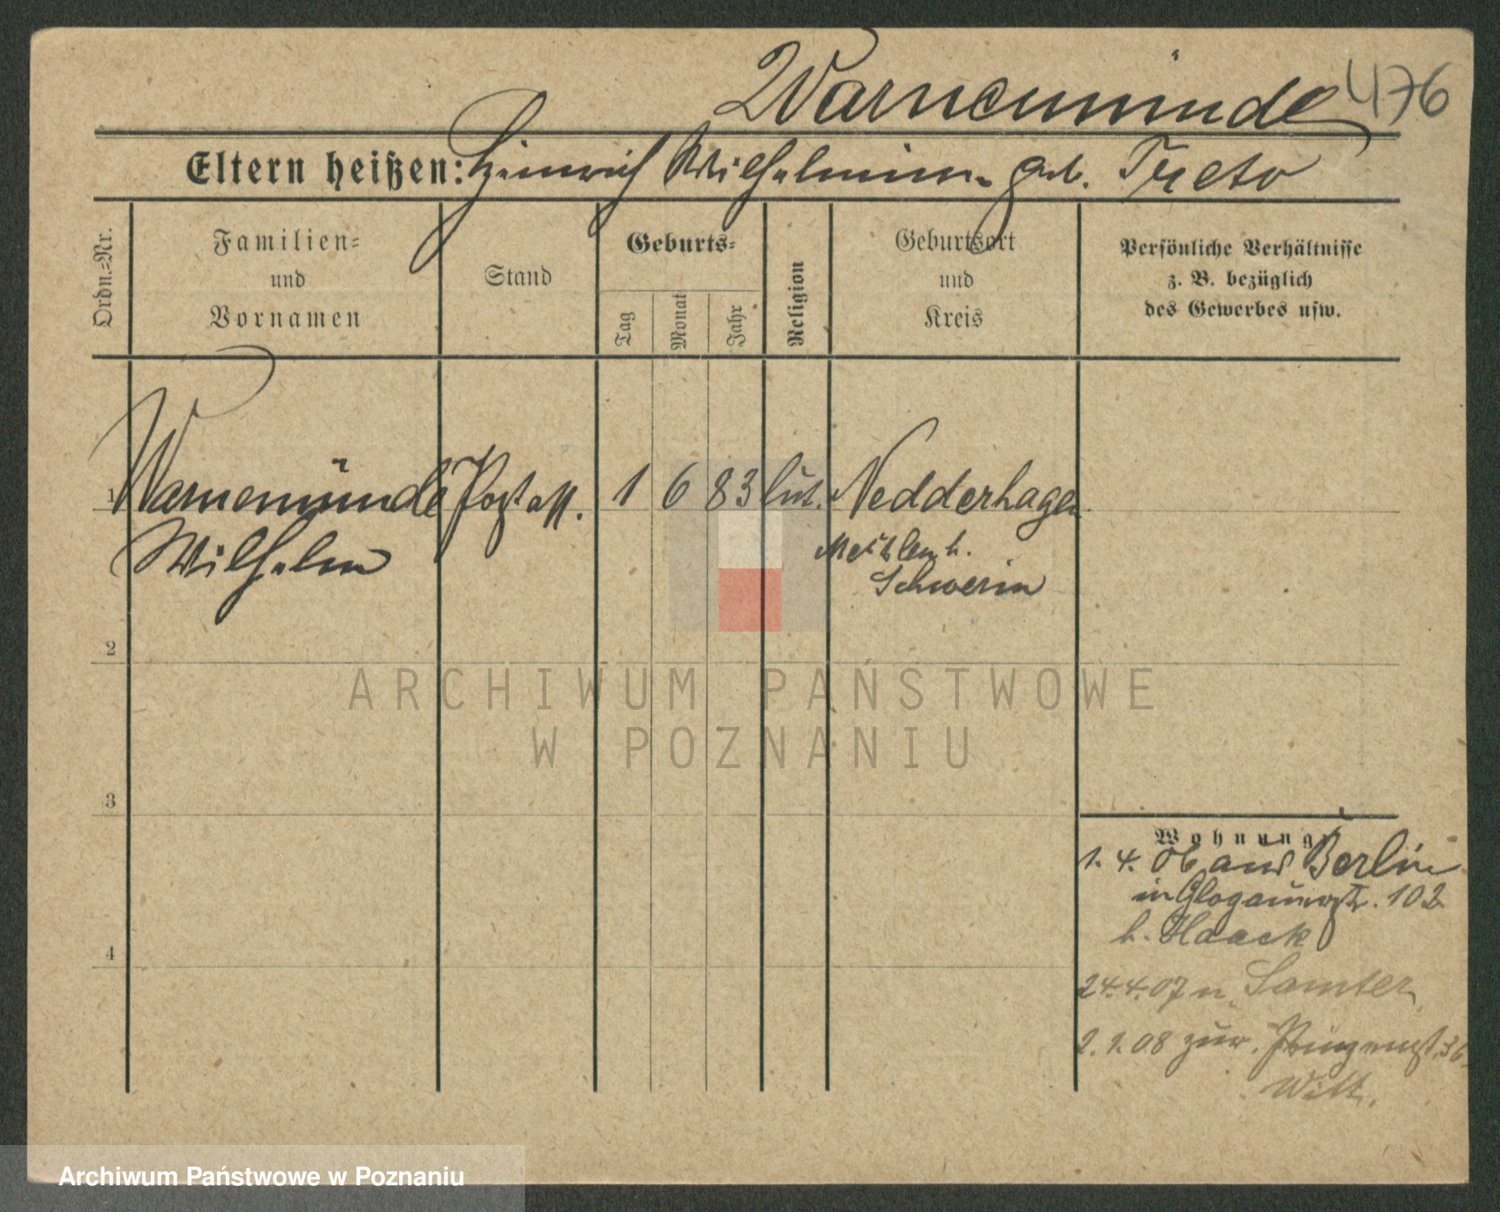 Warnemünde 476
Eltern heißen: Heinrich Wilhelmine geb. Treto
Ordn.=Nr.
Familien=
und
Vornamen
Stand
Geburts=
Tag
Monat
Jahr
Religion
Geburtsort
und
Kreis
Persönliche Verhältnisse
z. B. bezüglich
des Gewerbes usw.
1 Warnemünde Postass. 1 6 83 lut. Nedderhagen
Wilhelm Mecklenb.
Schwerin
2
3
4
Wohnung
1. 4. 06 aus Berlin
in Glogauerstr. 102
b. Haack
24.4.07 n. Samter
2.1.08 zur. Prinzenst. 36
Witt.
ARCHIWUM PAŃSTWOWE
W POZNANIU
Archiwum Państwowe w Poznaniu